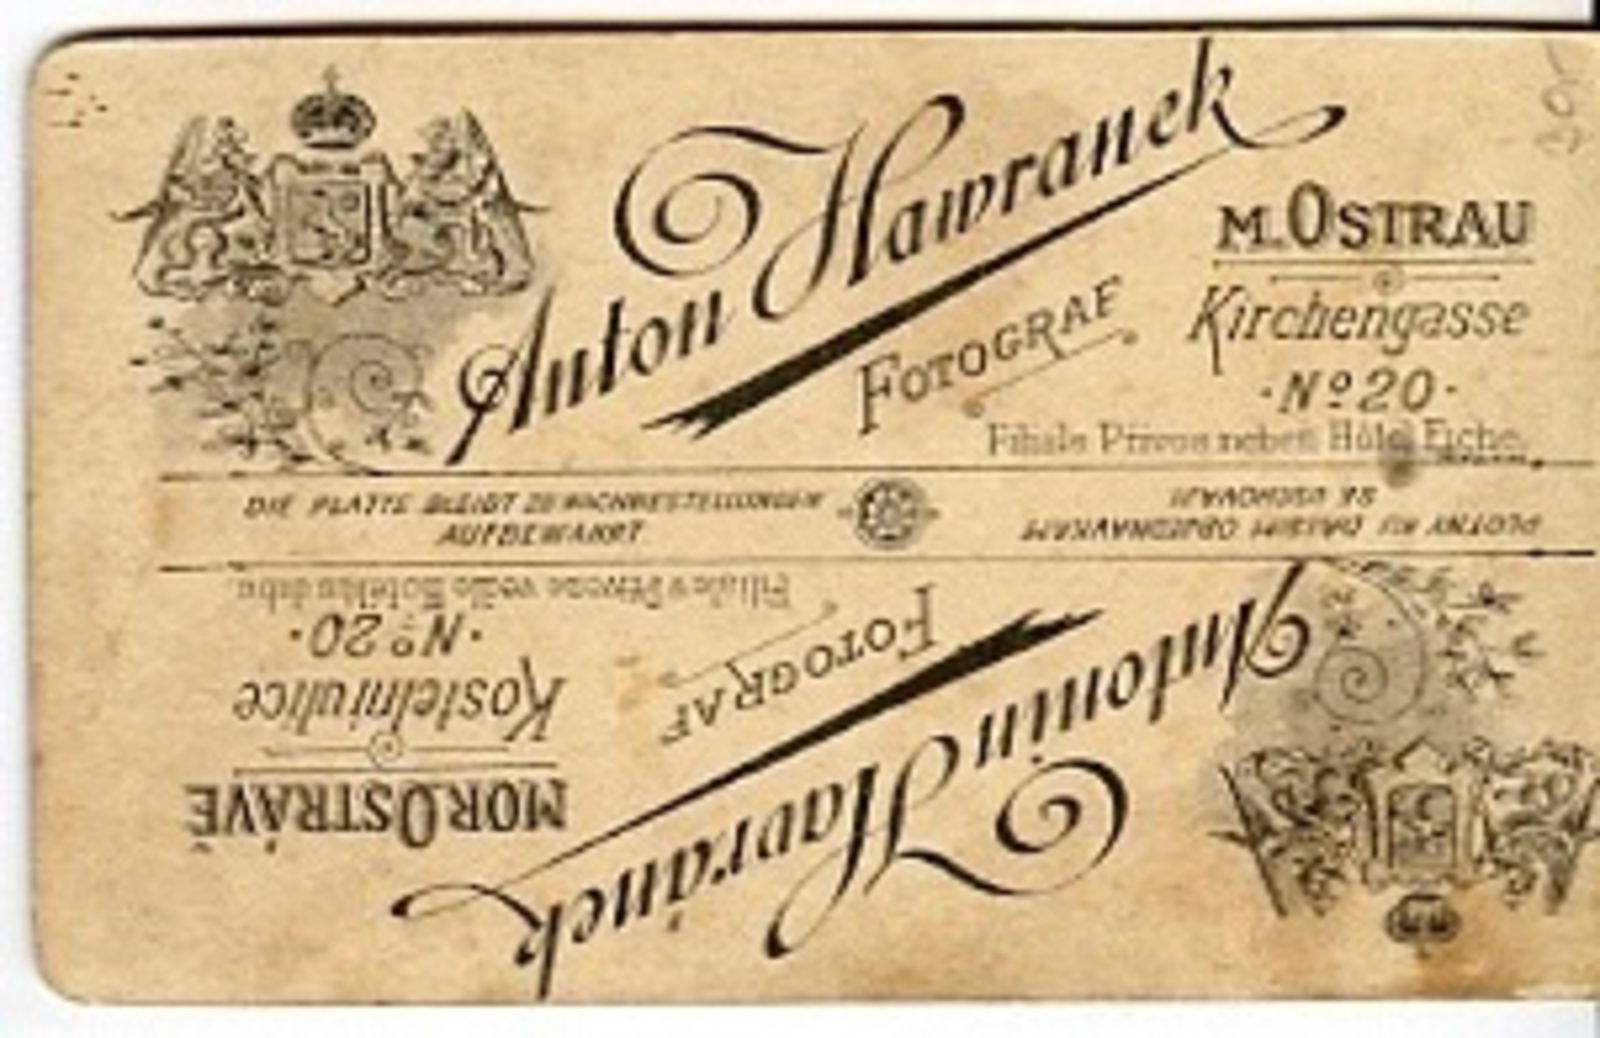 Anton Hawranek
Fotograf
M. Ostrau
Kirchengasse
· Nº 20 ·
Filiale Privos neben Hôtel Eiche.
DIE PLATTE BLEIBT ZU NACHBESTELLUNGEN
AUFBEWAHRT.
SE USCHOVAJÍ
Antonin Havránek
Fotograf
MOR. OSTRAVĚ
Kostelní ulice
· Nº 20 ·
Filialka v Přívoze vedle Hotêlu dubu.